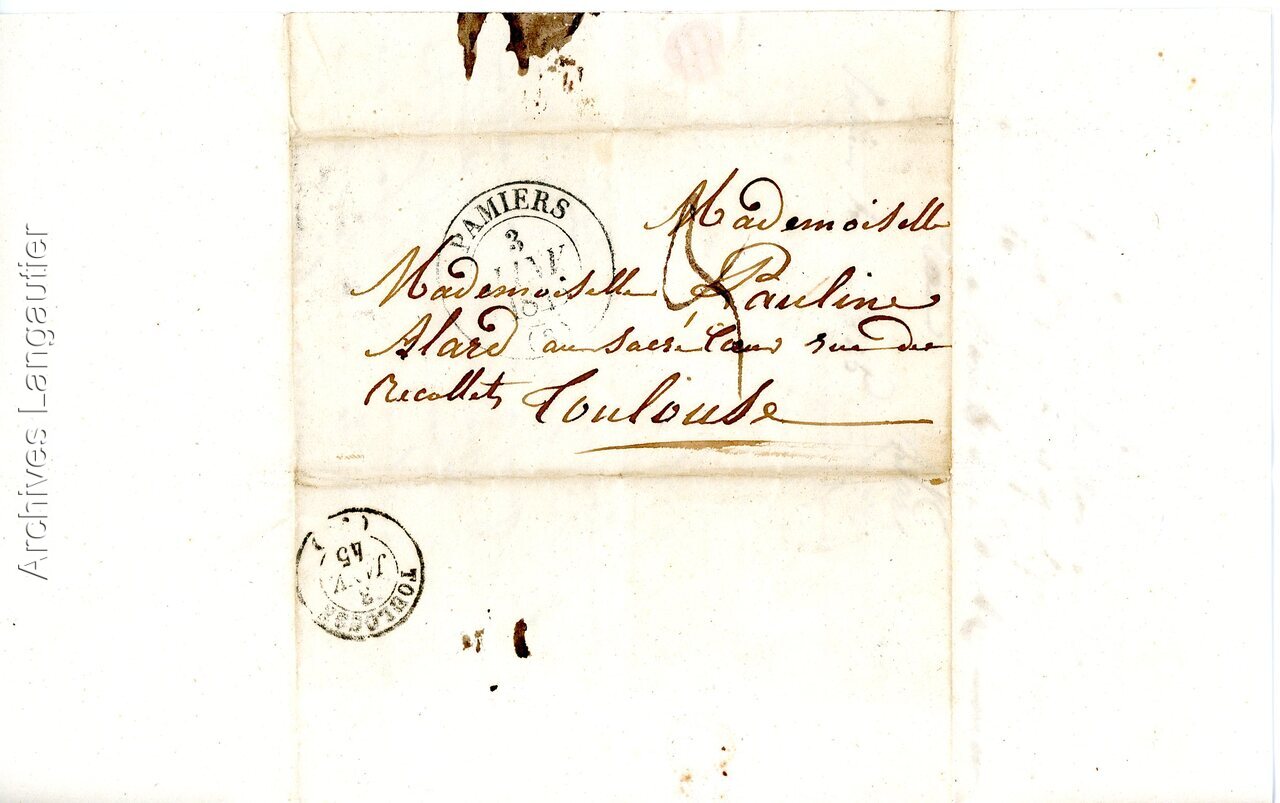 Archives Langautier
PAMIERS
3
JANV
184
(8)
Mademoiselle
Mademoiselle Pauline
Alard au sacré Cœur rue des
Recollets Toulouse
TOULOUSE
JANV
45